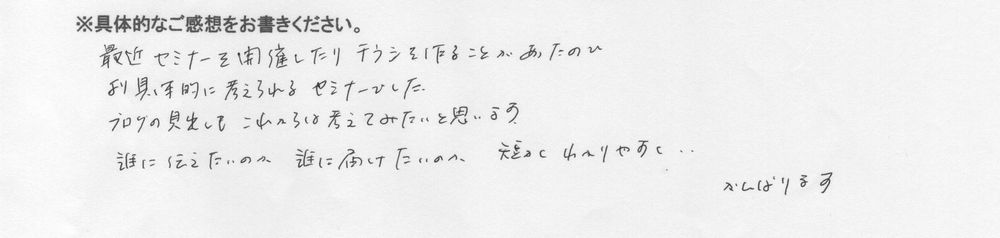 ※具体的なご感想をお書きください。
最近 セミナーを開催したり チラシを作ることがあったので
より具体的に考えられる セミナーでした。
ブログの見出しも これからは考えてみたいと思います
誰に伝えたいのか 誰に届けたいのか 短かく わかりやすく‥
がんばります